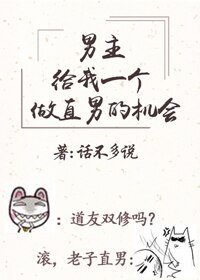 男主
给我一个
做直男的机会
著:话不多说
:道友双修吗?
滚,老子直男: